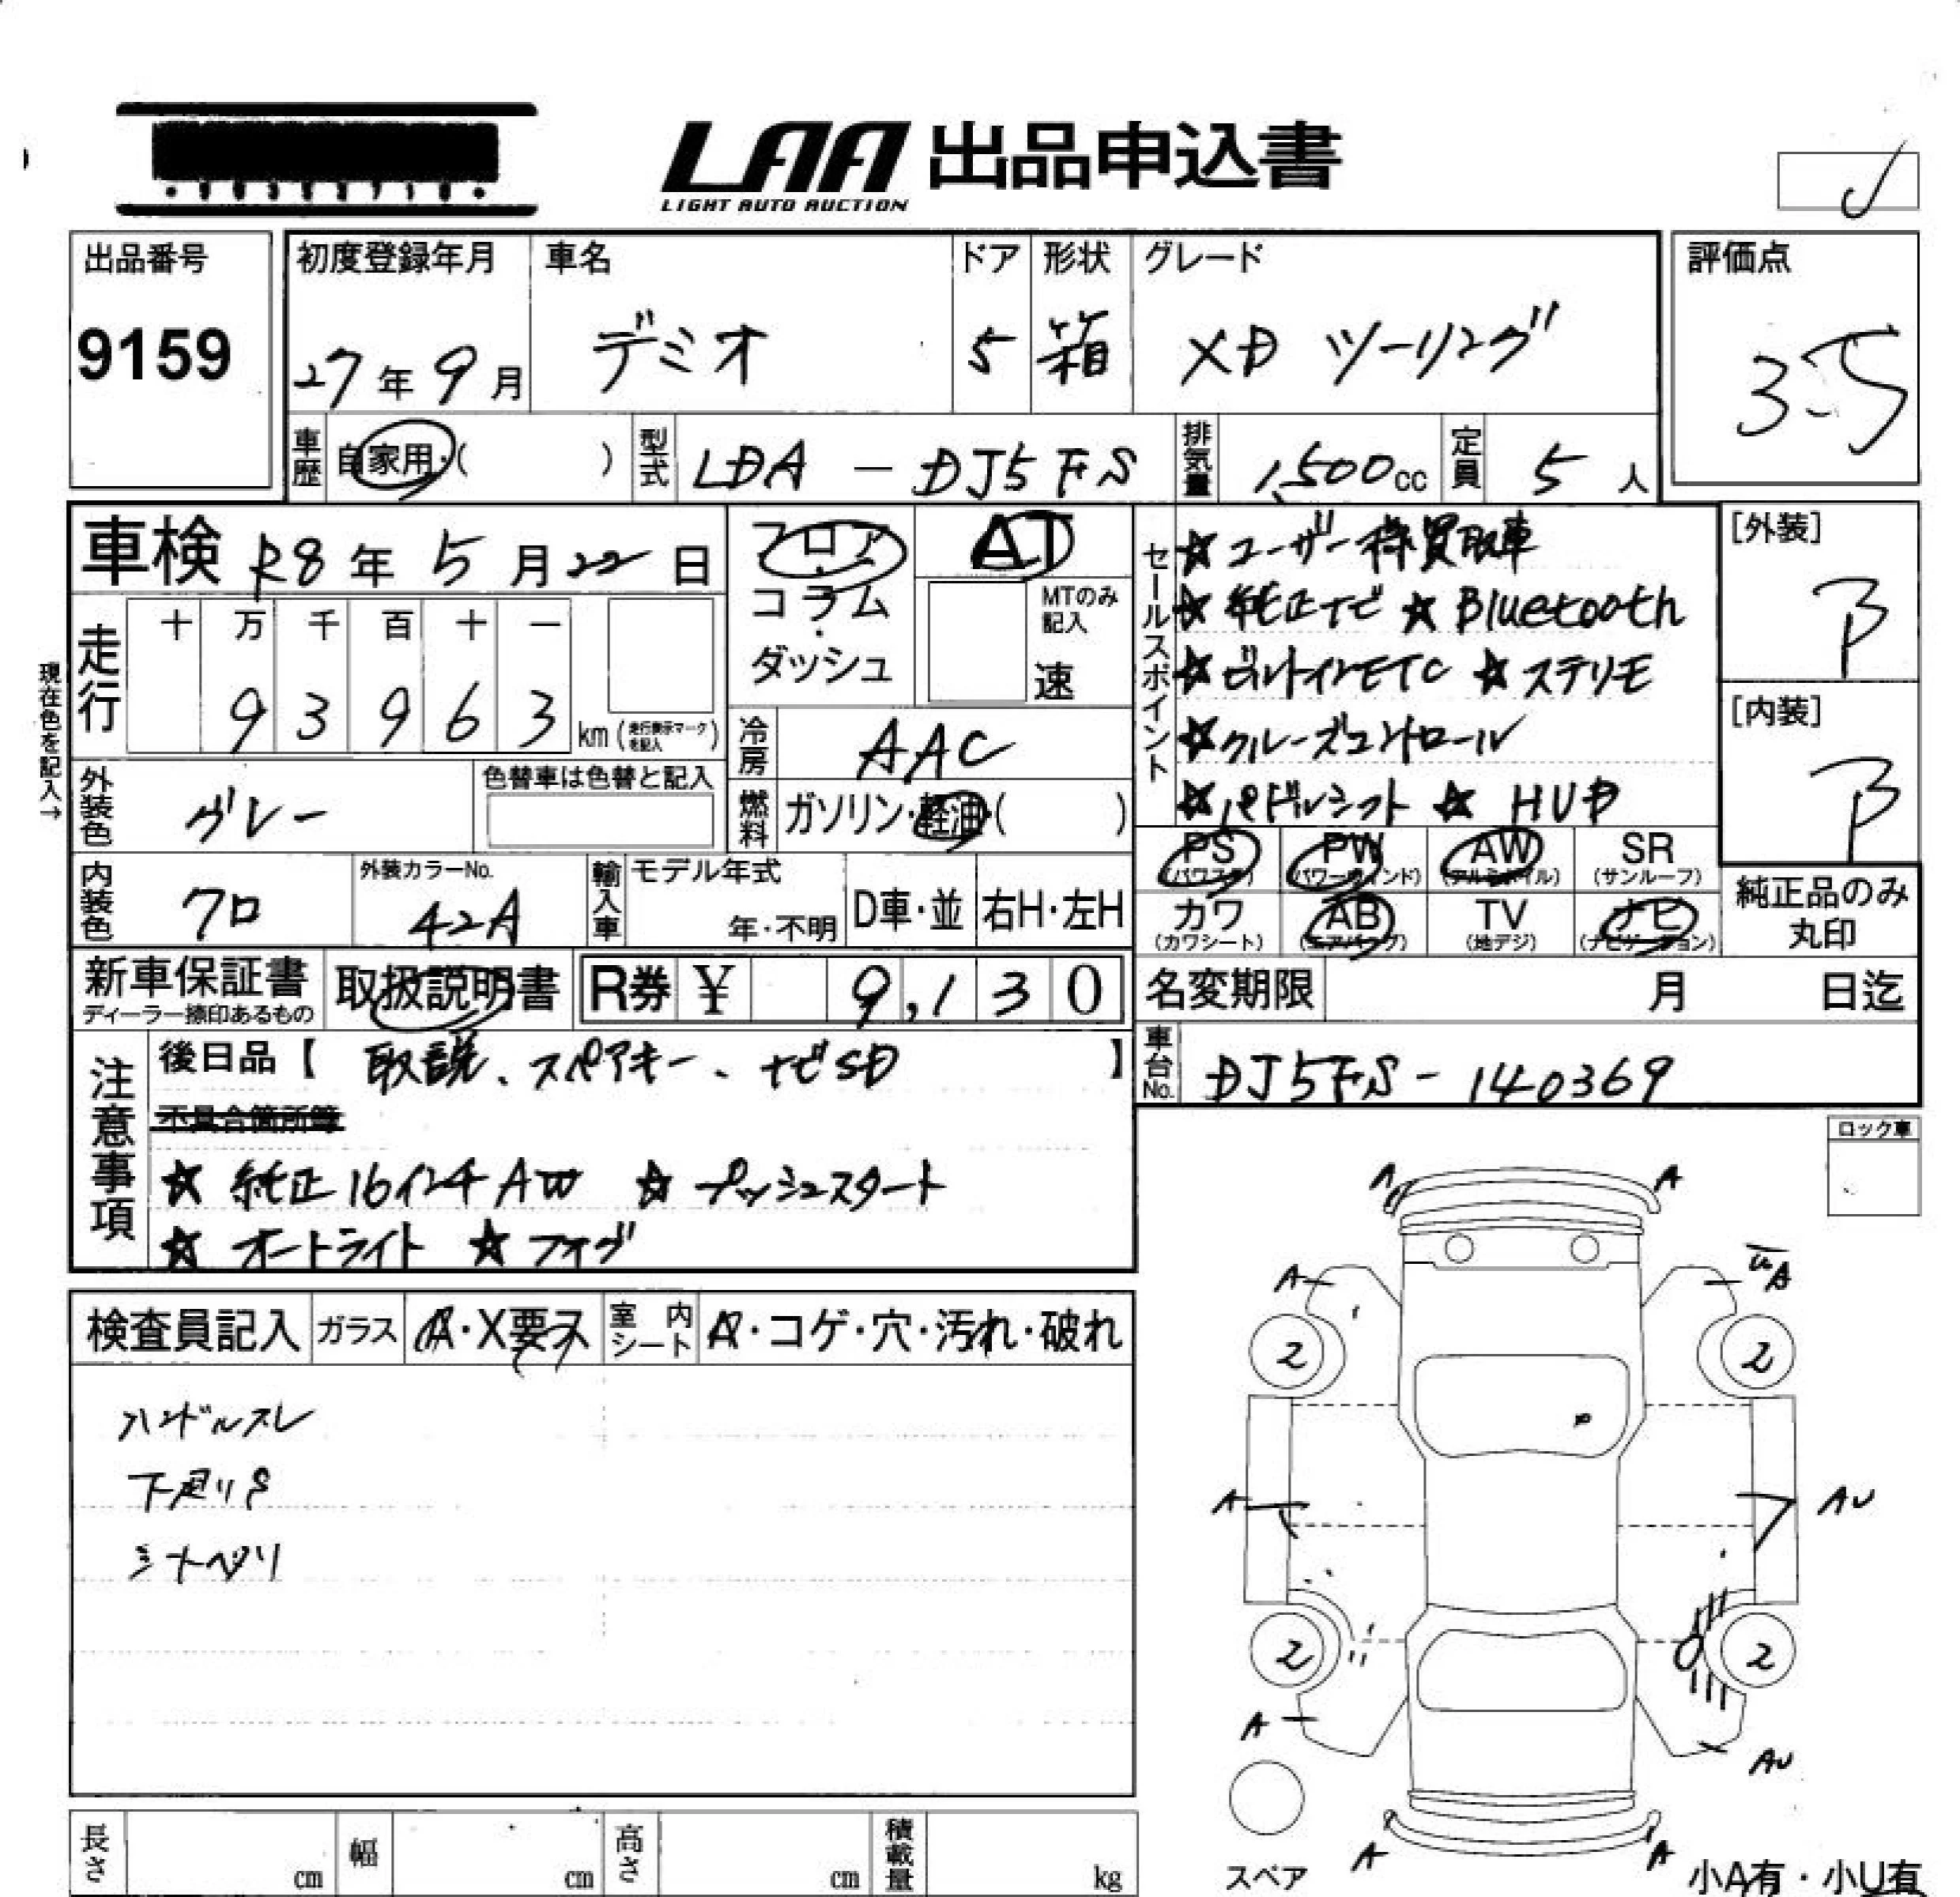 LAA 出品申込書
LIGHT AUTO AUCTION
出品番号
9159
初度登録年月
27年9月
車名
デミオ
ドア
5
形状
箱
グレード
XD ツーリング
評価点
3.5
車歴
自家用・( )
型式
LDA - DJ5FS
排気量
1,500cc
定員
5人
車検 R8年5月22日
現在色を記入→
走行
十 万 千 百 十 一
9 3 9 6 3 km (走行表示マークを記入)
フロア・コラム・ダッシュ
AT
MTのみ記入
速
冷房
AAC
燃料
ガソリン・軽油・( )
外装色
グレー
色替車は色替と記入
内装色
クロ
外装カラーNo.
42A
輸入車
モデル年式
年・不明
D車・並
右H・左H
セールスポイント
☆ユーザー様買取車
☆純正ナビ ☆Bluetooth
☆ビルトインETC ☆ステリモ
☆クルーズコントロール
☆パドルシフト ☆HUD
[外装]
B
[内装]
B
PS (パワステ) PW (パワーウインド) AW (アルミホイル) SR (サンルーフ)
カワ (カワシート) AB (エアバッグ) TV (地デジ) ナビ (ナビゲーション)
純正品のみ丸印
新車保証書
ディーラー捺印あるもの
取扱説明書
R券 ¥ 9,130
名変期限 月 日迄
車台No.
DJ5FS-140369
注意事項
後日品【 取説、スペアキー、ナビSD 】
不具合箇所等
☆ 純正16インチAW ☆ プッシュスタート
☆ オートライト ☆ フォグ
ロック車
検査員記入
ガラス
A・X要ス
室内シート
A・コゲ・穴・汚れ・破れ
ハンドルスレ
下廻りS
シートヘタリ
A A
A A
2 2
A AU
2 2
A AU
A A
スペア
小A有・小U有
長さ cm 幅 cm 高さ cm 積載量 kg